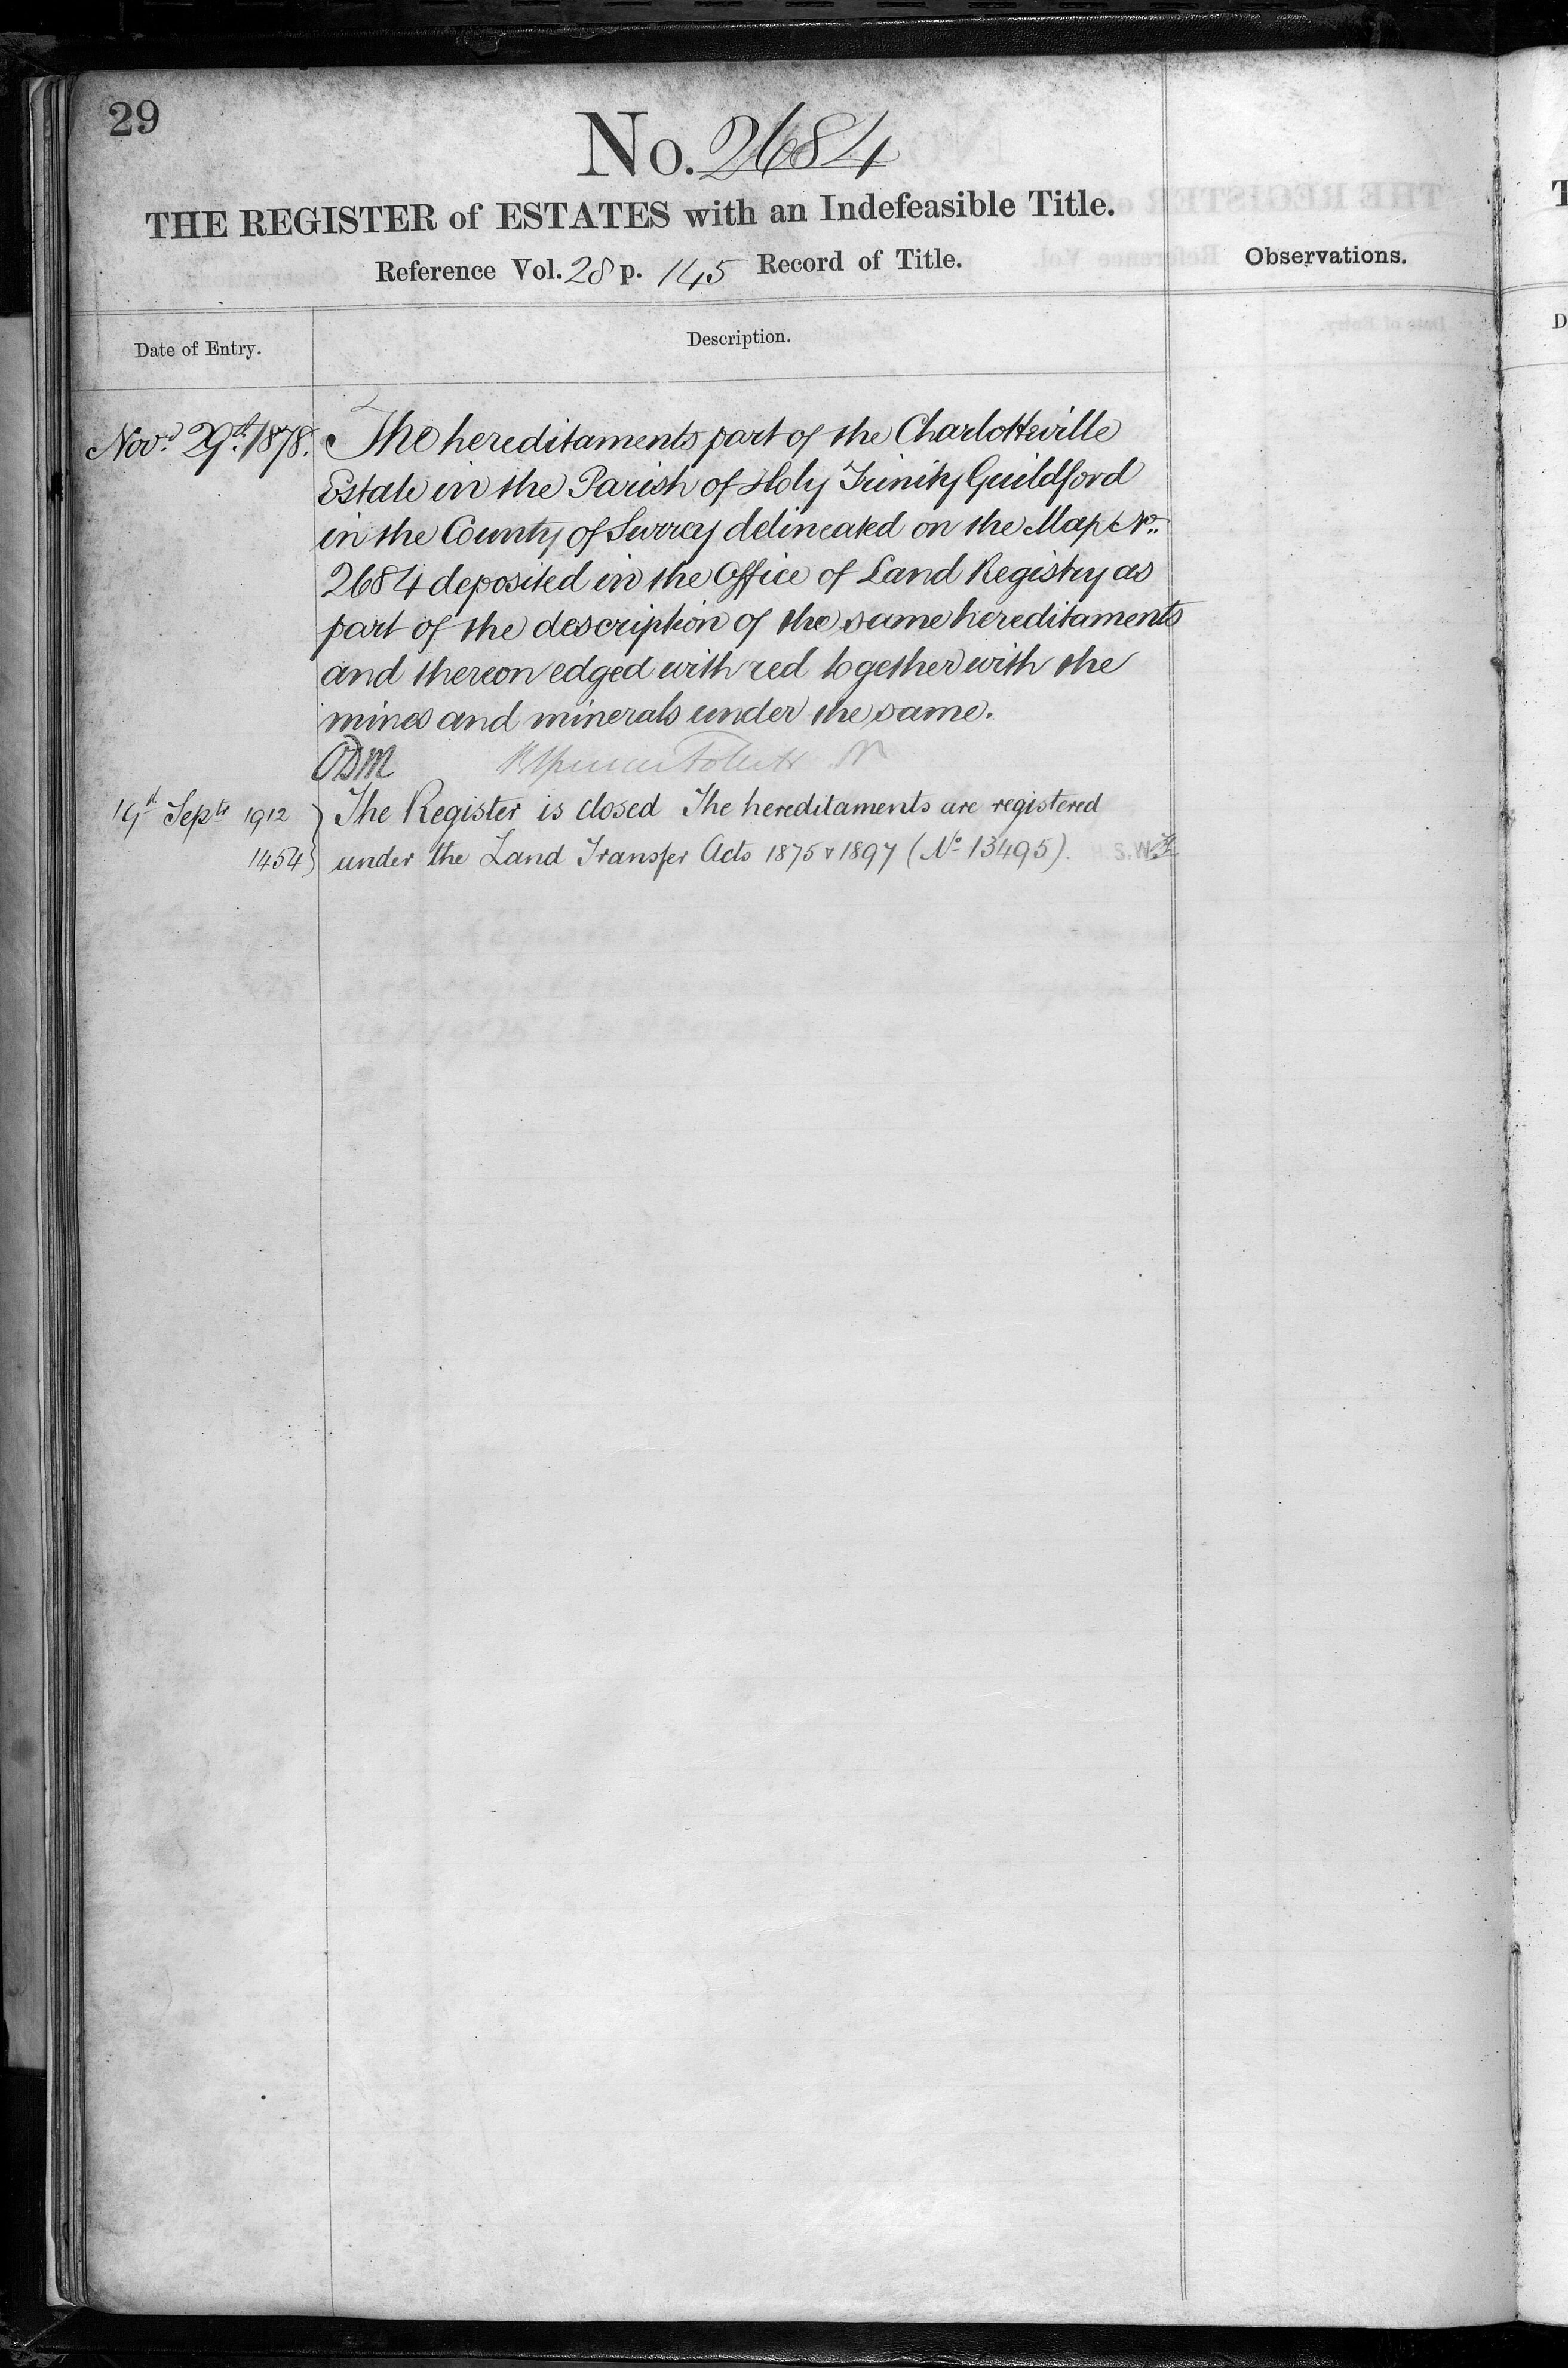 29
No. 2684
THE REGISTER of ESTATES with an Indefeasible Title.
Reference Vol. 28 p. 145 Record of Title.
Observations.
Date of Entry.
Description.
Novr. 29th. 1878. The hereditaments part of the Charlotteville
Estate in the Parish of Holy Trinity Guildford
in the County of Surrey delineated on the Map No.
2684 deposited in the Office of Land Registry as
part of the description of the same hereditaments
and thereon edged with red together with the
mines and minerals under the same.
19th Septr 1912 The Register is closed The hereditaments are registered
1454 under the Land Transfer Acts 1875 & 1897 (No 13495).